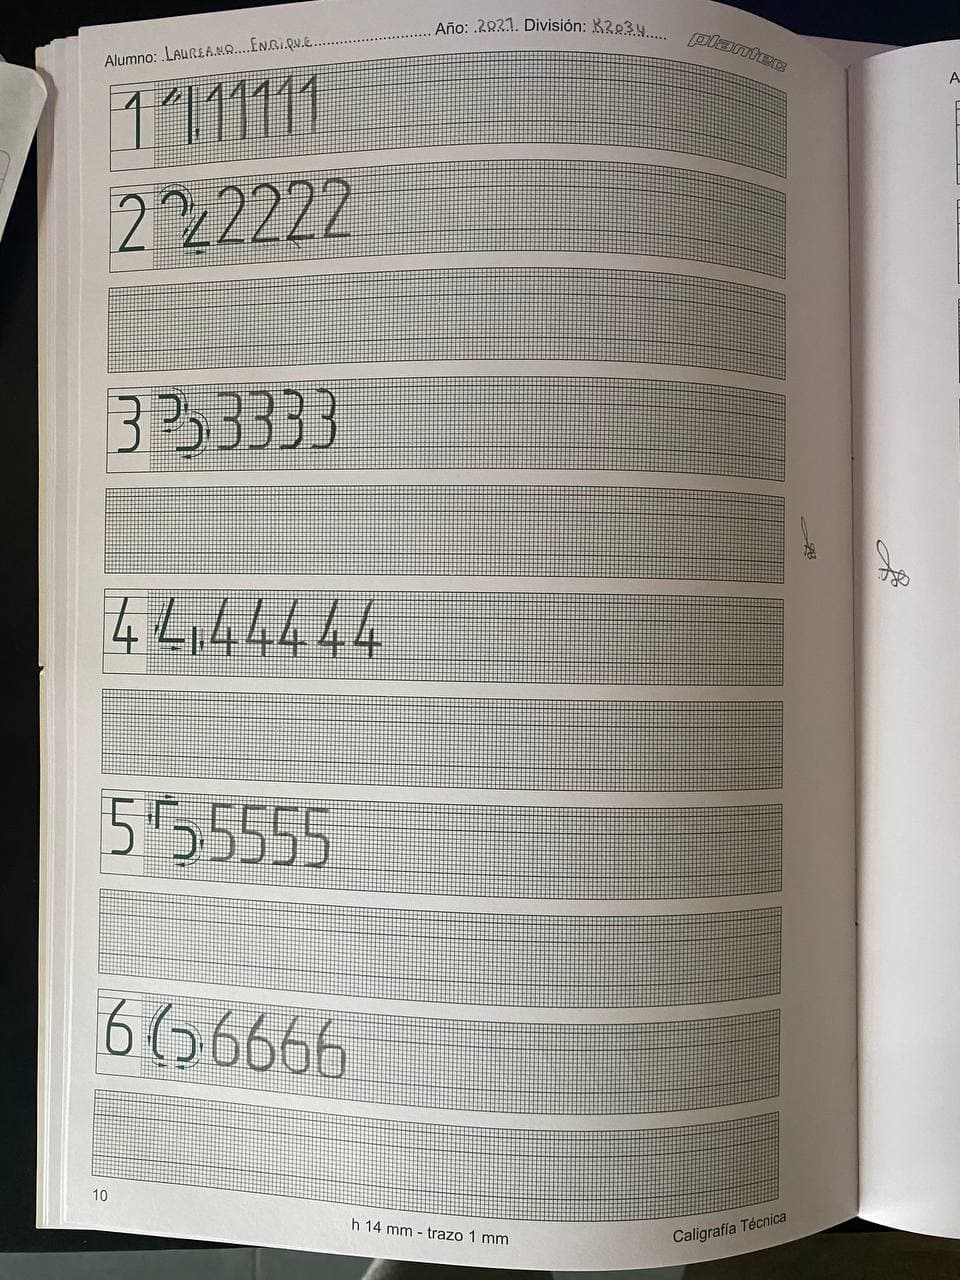 Alumno: LAUREANO ENRIQUE Año: 2021 División: K2034 plantec
1 1 1 1 1 1 1
2 2 2 2 2 2 2
3 3 3 3 3 3
4 4 4 4 4 4 4 4
5 5 5 5 5 5
6 6 6 6 6 6
10
h 14 mm - trazo 1 mm
Caligrafía Técnica